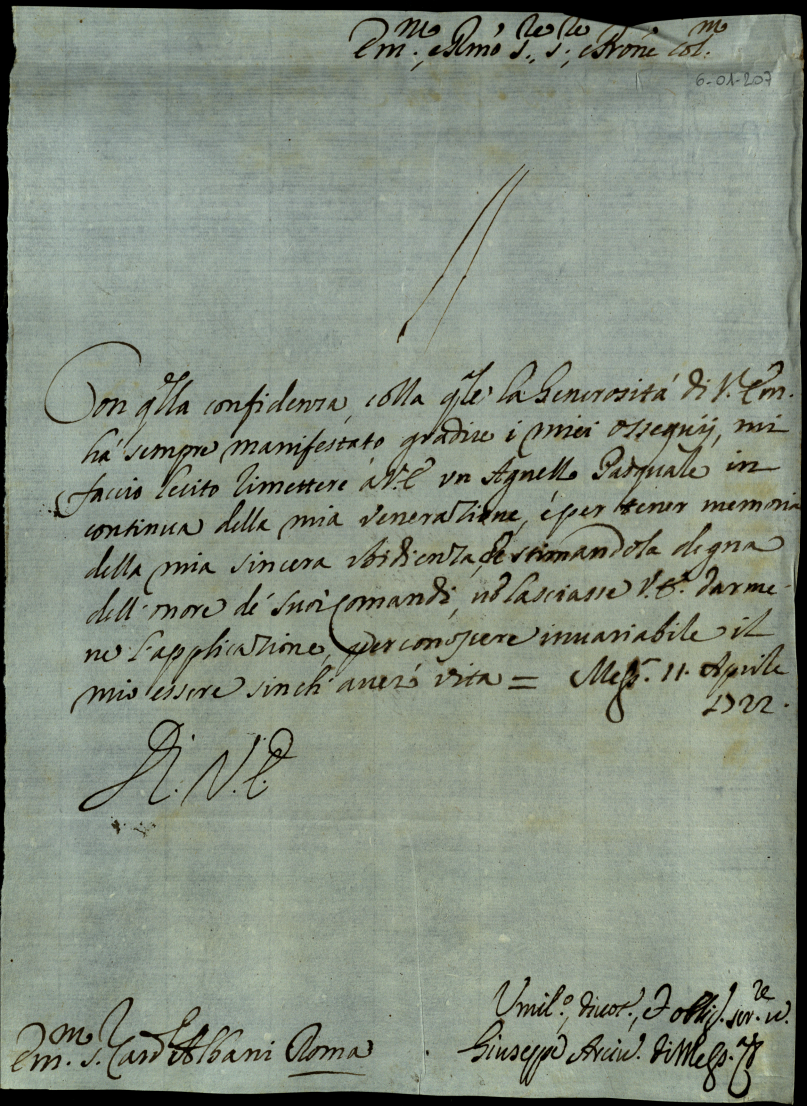 Em.mo, e Rmo S.re, S.re, e Prone Col.mo
6-01-207
Con qlla confidenza, colla qle la Generosità di V. Em.
hà sempre manifestato gradire i miei ossequij, mi
faccio lecito rimettere à V.E. un Agnello Pasquale in
continua della mia venerazione, é per tener memoria
della mia sincera obidienza, e stimandola degna
dell'onore de' suoi comandi, nò lasciasse V.E. darme-
ne l'applicazione, per conoscere invariabile il
mio essere sinch'averó vita = Mess. 11. Aprile
1722.
Di. V.E.
Umil.o, divot., et oblig. ser.re v.
Em.mo S. Card.le Albani Roma
Giuseppe Arciv. di Mess.